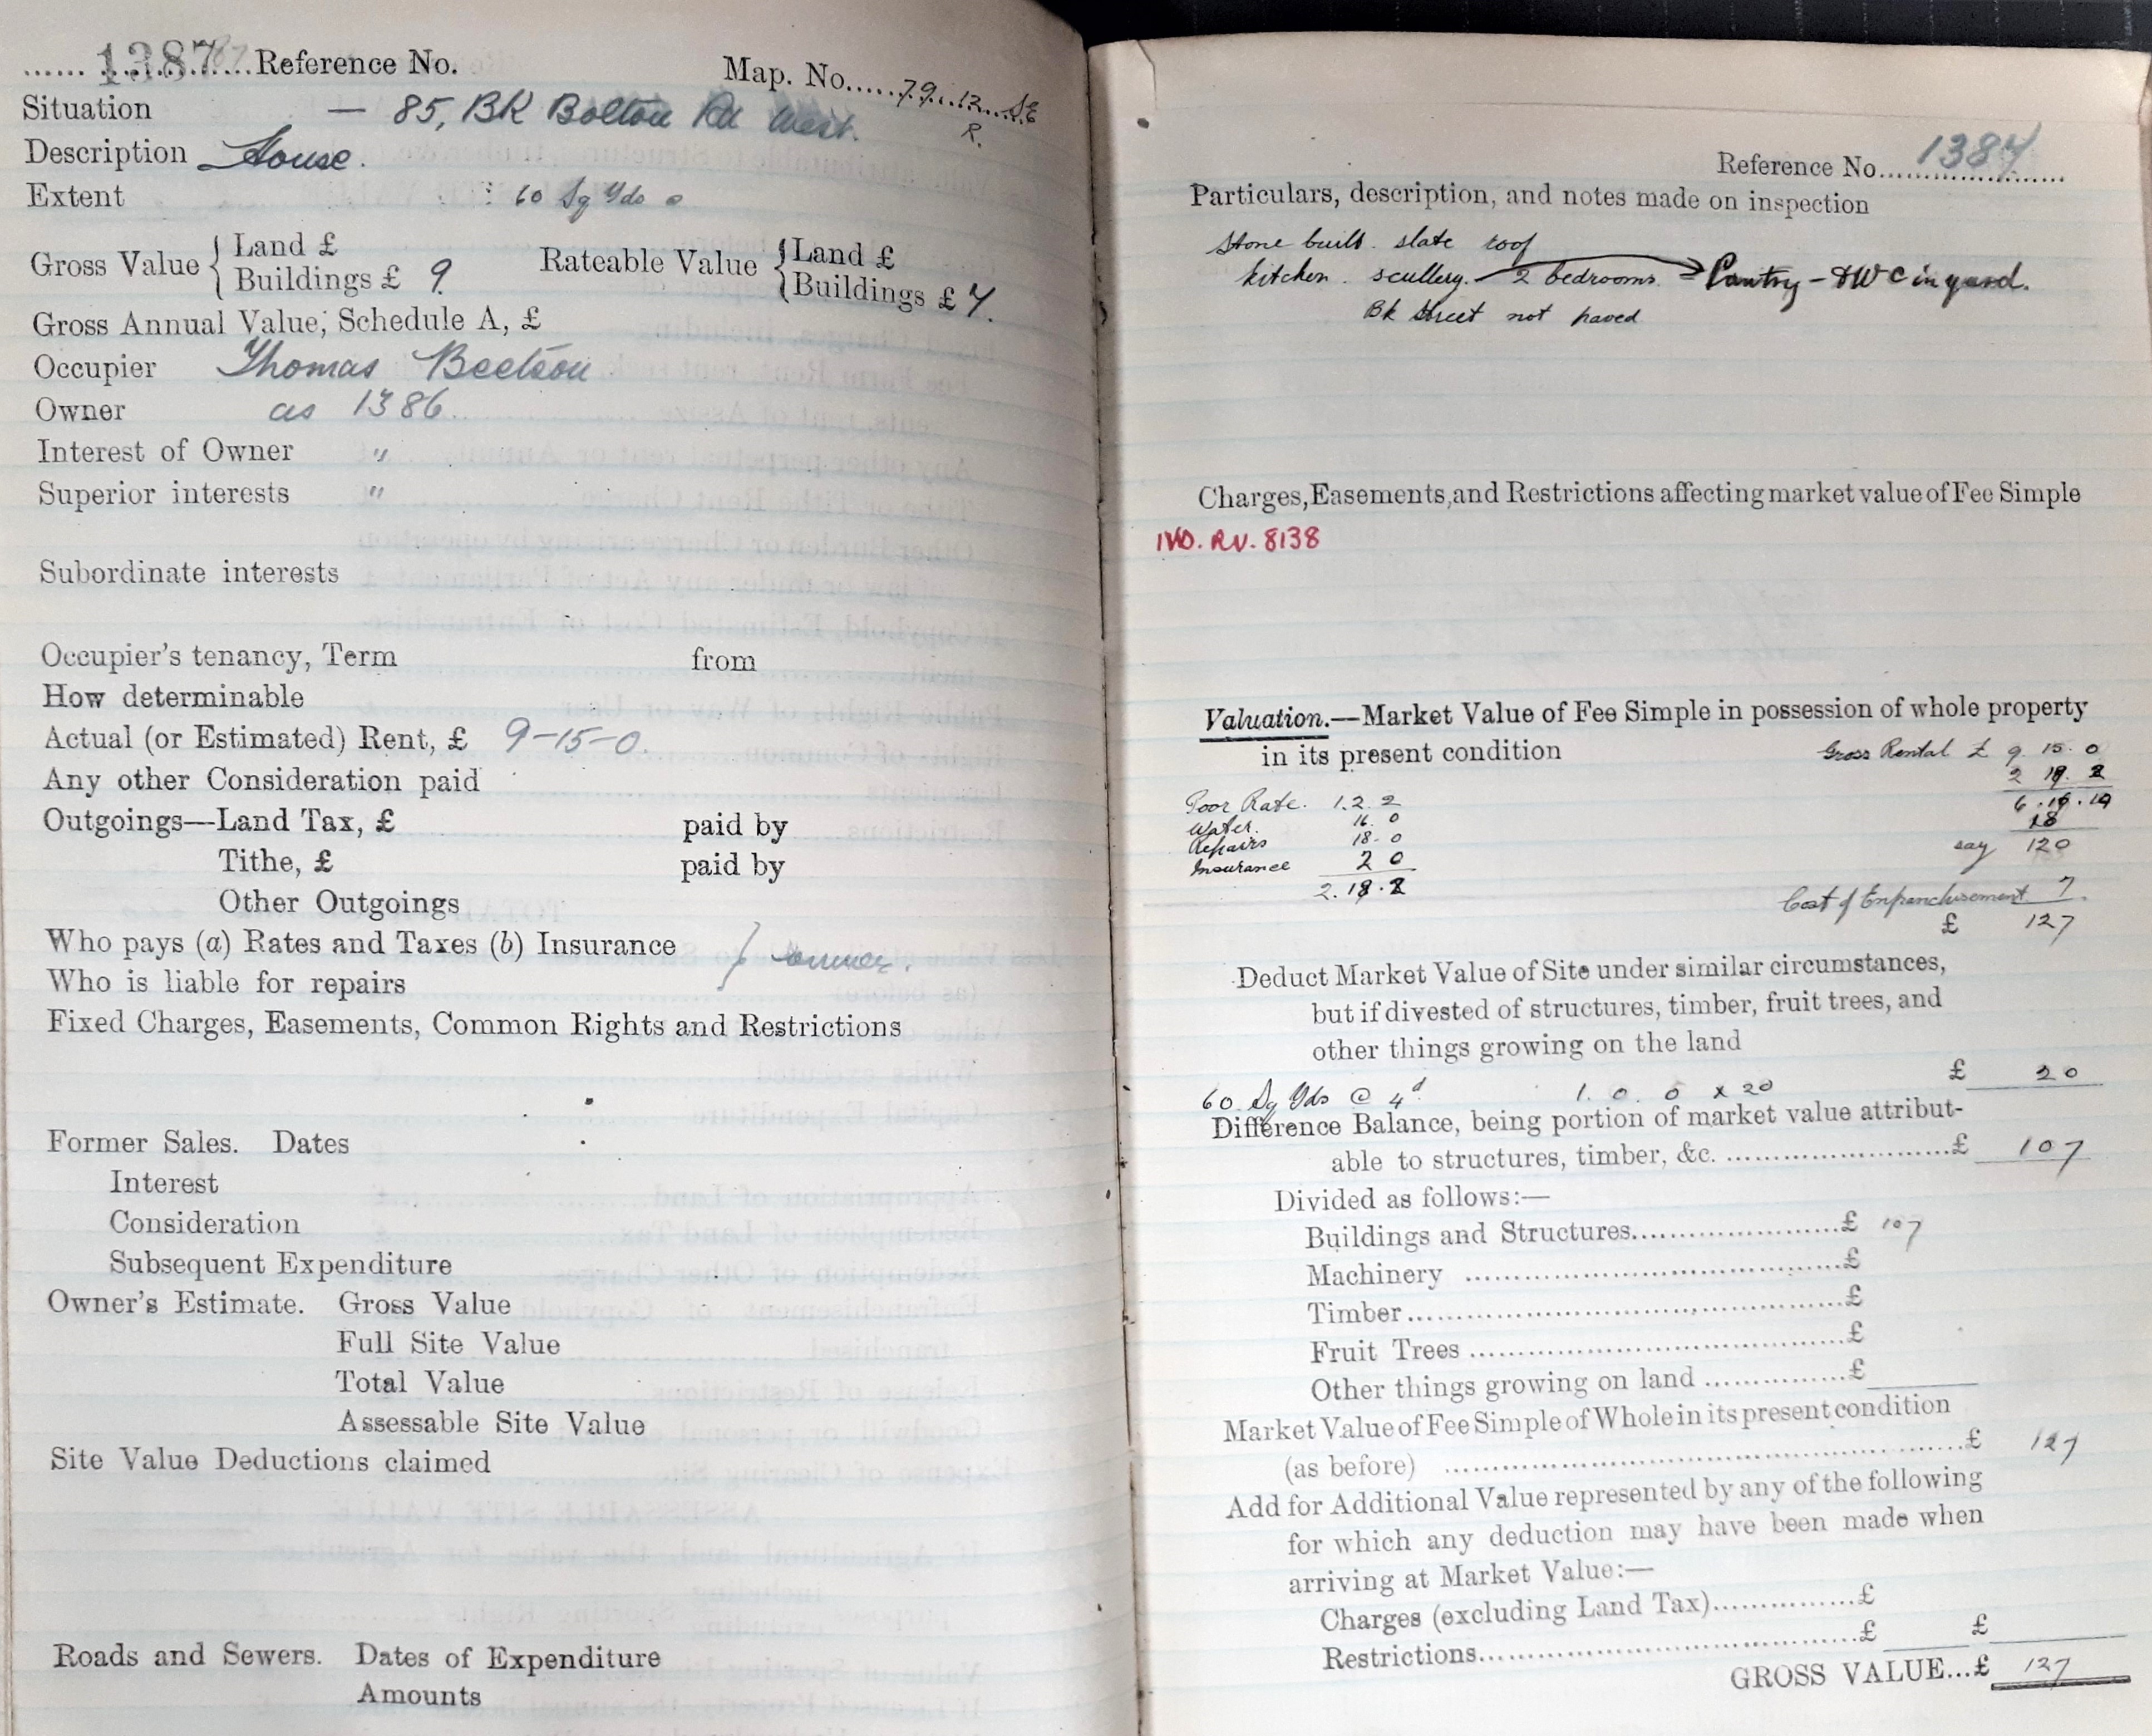 1387 Reference No. Map. No. 79. 12. SE
R.
Situation — 85, BK Bolton Rd West.
Description House.
Extent 60 Sq Yds
Gross Value { Land £
Buildings £ 9. Rateable Value { Land £
Buildings £ 7.
Gross Annual Value, Schedule A, £
Occupier Thomas Beetson
Owner as 1386
Interest of Owner "
Superior interests "
Subordinate interests
Occupier's tenancy, Term from
How determinable
Actual (or Estimated) Rent, £ 9-15-0.
Any other Consideration paid
Outgoings—Land Tax, £ paid by
Tithe, £ paid by
Other Outgoings
Who pays (a) Rates and Taxes (b) Insurance } owner.
Who is liable for repairs
Fixed Charges, Easements, Common Rights and Restrictions
Former Sales. Dates
Interest
Consideration
Subsequent Expenditure
Owner's Estimate. Gross Value
Full Site Value
Total Value
Assessable Site Value
Site Value Deductions claimed
Roads and Sewers. Dates of Expenditure
Amounts
Reference No. 1387
Particulars, description, and notes made on inspection
Stone built. slate roof
kitchen. scullery. 2 bedrooms. Pantry - & WC in yard.
Bk Street not paved
Charges, Easements, and Restrictions affecting market value of Fee Simple
IVD. RV. 8138
Valuation.—Market Value of Fee Simple in possession of whole property
in its present condition Gross Rental £ 9. 15. 0
2 18. 2
Poor Rate. 1. 2. 2 6. 16. 10
Water. 16. 0 18
Repairs 18. 0 say 120
Insurance 2 0
2. 18. 2
Cost of Enfranchisement 7
£ 127
Deduct Market Value of Site under similar circumstances,
but if divested of structures, timber, fruit trees, and
other things growing on the land
60 Sq Yds @ 4d 1. 0. 0 x 20 £ 20
Difference Balance, being portion of market value attribut-
able to structures, timber, &c. £ 107
Divided as follows:—
Buildings and Structures £ 107
Machinery £
Timber £
Fruit Trees £
Other things growing on land £
Market Value of Fee Simple of Whole in its present condition
(as before) £ 127
Add for Additional Value represented by any of the following
for which any deduction may have been made when
arriving at Market Value:—
Charges (excluding Land Tax) £
Restrictions £ £
GROSS VALUE...£ 127